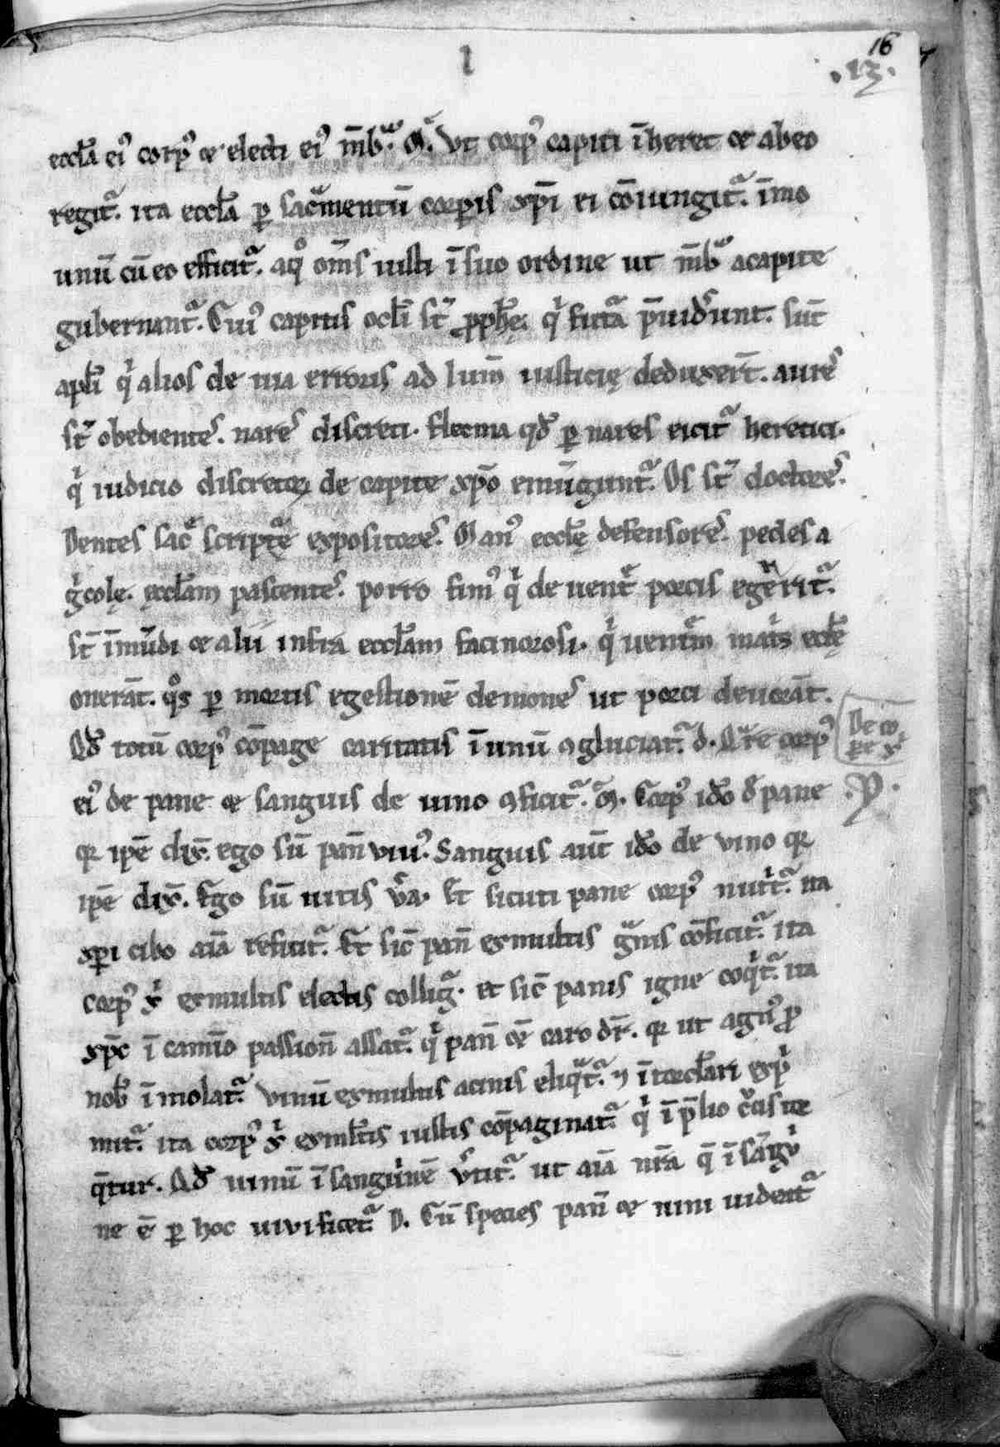 16
.13.
eccl̄a ei᷒ corp᷒ ⁊ electi ei᷒ m̄bᷓ. Ut corp᷒ capiti īheret ⁊ ab eo
regit᷑. ita eccl̄a ꝑ sac̄mentū corꝑis xp̄i ei cōiungit᷑. īmo
unū cū eo efficit᷑. a qͦ om̄s iusti ī suo ordine ut m̄bᷓ a capite
gubernant᷑. Cui᷒ capitis ocl̄i st̄ ꝓph̄e. qͥ fut᷑a p̄uider̄unt. sūt
apl̄i qͥ alios de uia erroris ad lum̄ iusticię deduxer̄t. aures
st̄ obedientes. nares discreti. flecma qd̄ ꝑ nares eicit᷑ heretici.
qͥ iudicio discretoꝝ de capite xp̄o emūgunt᷑. Os st̄ doctores.
Dentes sac̄ sc̄riptᷓę expositores. Man᷒ eccl̄ę defensores. pedes a
gͥcolę. ęccl̄am pascentes. porro fim᷒ qͥ de uent̄ porcis eger̄it᷑.
st̄ īmūdi ⁊ alii infra eccl̄am facinorosi. qͥ uent̄m mat̄s eccl̄ę
onerāt. qͦs ꝑ mortis egestionē demones ut porci deuorāt.
Qd̄ totū corp᷒ cōpage caritatis ī unū ꝯglutiat᷑. D. Qͣre corp᷒
De co
ei᷒ de pane ⁊ sanguis de uino ꝯficit᷑. M. Corp᷒ id̄o d̄ pane
qꝛ ip̄e dix̄. ego sū pan̄ viu᷒. Sanguis aūt id̄o de vino qꝛ
ip̄e dix̄. Ego sū uitis ūa. Et sicuti pane corp᷒ nutͥt᷑. ita
xp̄i cibo aīa reficit᷑. Et sic̄ pan̄ ex multis gͣnis cōficit᷑. ita
corp᷒ xͥ ex multis electis collig᷑. et sic̄ panis igne coqͥt᷑. ita
xp̄c ī camīo passion̄ assat᷑. qͥ pan̄ ⁊ caro dr̄. qꝛ ut agn᷒ ꝓ
nob̄ īmolat᷑. Vinū ex multis acinis eliqͣt᷑. ⁊ ī torcl̄ari expͥ
mit᷑. ita corp᷒ xͥ ex ml̄tis iustis cōpaginat᷑. qͥ ī p̄lio cͬcis ue
q̄tur. Qd̄ uinū ī sangͥnē ūtit᷑. ut aīa nr̄a q̄ ī sāgͥ
ne ē ꝑ hoc uiuificet᷑. D. Cū species pan̄ ⁊ uini uideat᷑